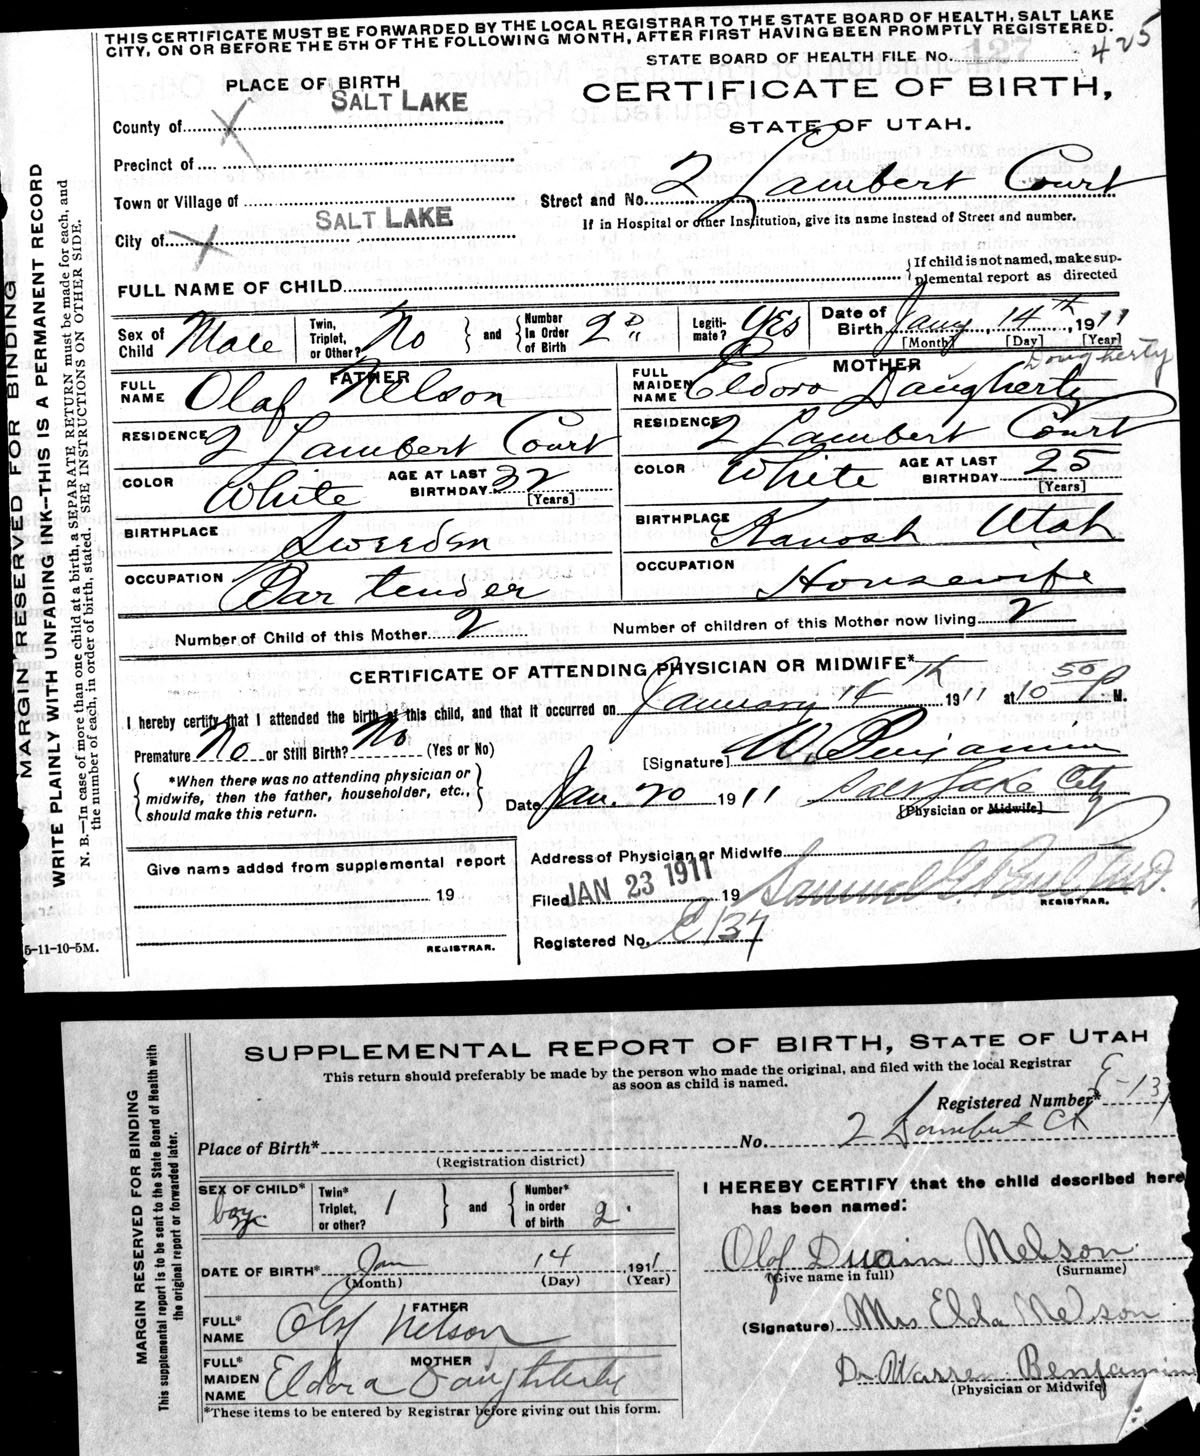 THIS CERTIFICATE MUST BE FORWARDED BY THE LOCAL REGISTRAR TO THE STATE BOARD OF HEALTH, SALT LAKE
CITY, ON OR BEFORE THE 5TH OF THE FOLLOWING MONTH, AFTER FIRST HAVING BEEN PROMPTLY REGISTERED.
STATE BOARD OF HEALTH FILE No. 127 425
PLACE OF BIRTH
CERTIFICATE OF BIRTH,
STATE OF UTAH.
County of SALT LAKE
Precinct of
Town or Village of
City of SALT LAKE
Street and No. 2 Lambert Court
If in Hospital or other Institution, give its name instead of Street and number.
FULL NAME OF CHILD
{If child is not named, make sup-
plemental report as directed
Sex of Child Male
Twin, Triplet, or Other? No } and { Number In Order of Birth 2"D
Legiti-mate? Yes
Date of Birth Jany, 14th, 1911
[Month] [Day] [Year]
FATHER
FULL NAME Olaf Nelson
RESIDENCE 2 Lambert Court
COLOR White AGE AT LAST BIRTHDAY 32
[Years]
BIRTHPLACE Sweedsn
OCCUPATION Bar tender
MOTHER Dougherty
FULL MAIDEN NAME Eldoro Daugherty
RESIDENCE 2 Lambert Court
COLOR White AGE AT LAST BIRTHDAY 25
[Years]
BIRTHPLACE Kanosh Utah
OCCUPATION Housewife
Number of Child of this Mother 2 Number of children of this Mother now living 2
CERTIFICATE OF ATTENDING PHYSICIAN OR MIDWIFE*
I hereby certify that I attended the birth of this child, and that it occurred on January 14th 1911 at 10 50 P. M.
Premature No or Still Birth? No (Yes or No)
[Signature] W. Benjamin
{ *When there was no attending physician or
midwife, then the father, householder, etc.,
should make this return. }
Date Jan. 20 1911 Salt Lake City
[Physician or Midwife]
Give name added from supplemental report
19
REGISTRAR.
Address of Physician or Midwife
Filed JAN 23 1911 19 Samuel G. Paul M.D.
REGISTRAR.
Registered No. C137
MARGIN RESERVED FOR BINDING
WRITE PLAINLY WITH UNFADING INK—THIS IS A PERMANENT RECORD
N. B.—In case of more than one child at a birth, a SEPARATE RETURN must be made for each, and
the number of each, in order of birth, stated. SEE INSTRUCTIONS ON OTHER SIDE.
5-11-10-5M.
SUPPLEMENTAL REPORT OF BIRTH, STATE OF UTAH
This return should preferably be made by the person who made the original, and filed with the local Registrar
as soon as child is named.
Registered Number* C-137
Place of Birth* No. 2 Lambert Ct
(Registration district)
SEX OF CHILD* boy
Twin* Triplet, or other? 1 } and { Number* in order of birth 2
DATE OF BIRTH* Jan 14 1911
(Month) (Day) (Year)
FATHER
FULL* NAME Olof Nelson
MOTHER
FULL* MAIDEN NAME Eldora Daughterty
*These items to be entered by Registrar before giving out this form.
I HEREBY CERTIFY that the child described here
has been named:
Olof Duain Nelson
(Give name in full) (Surname)
(Signature) Mrs Elda Nelson
Dr Warren Benjamin
(Physician or Midwife)
MARGIN RESERVED FOR BINDING
This supplemental report is to be sent to the State Board of Health with
the original report or forwarded later.